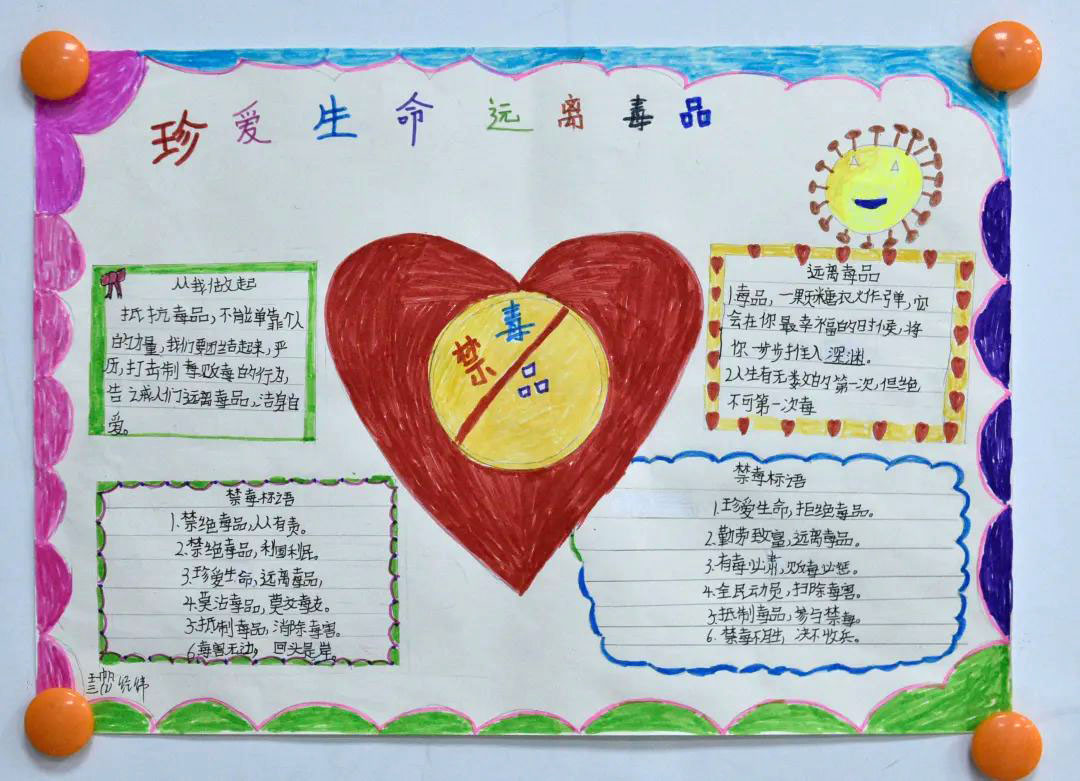 珍爱生命远离毒品
从我做起
抵抗毒品,不能单靠个人
的力量,我们要团结起来,严
厉,打击制毒贩毒的行为,
告诫人们远离毒品,洁身自
爱。
禁毒品
远离毒品
1.毒品,一颗糖衣炸弹,它
会在你最幸福的时候,将
你一步步推入深渊。
2.人生有无数的第一次,但绝
不可第一次毒
禁毒标语
1.禁绝毒品,人人有责。
2.禁绝毒品,利国利民。
3.珍爱生命,远离毒品,
4.莫沾毒品,莫交毒友。
5.抵制毒品,消除毒害。
6.毒害无边,回头是岸。
禁毒标语
1.珍爱生命,拒绝毒品。
2.勤劳致富,远离毒品。
3.有毒必肃,贩毒必惩。
4.全民动员,扫除毒害。
5.抵制毒品,参与禁毒。
6.禁毒不胜,决不收兵。